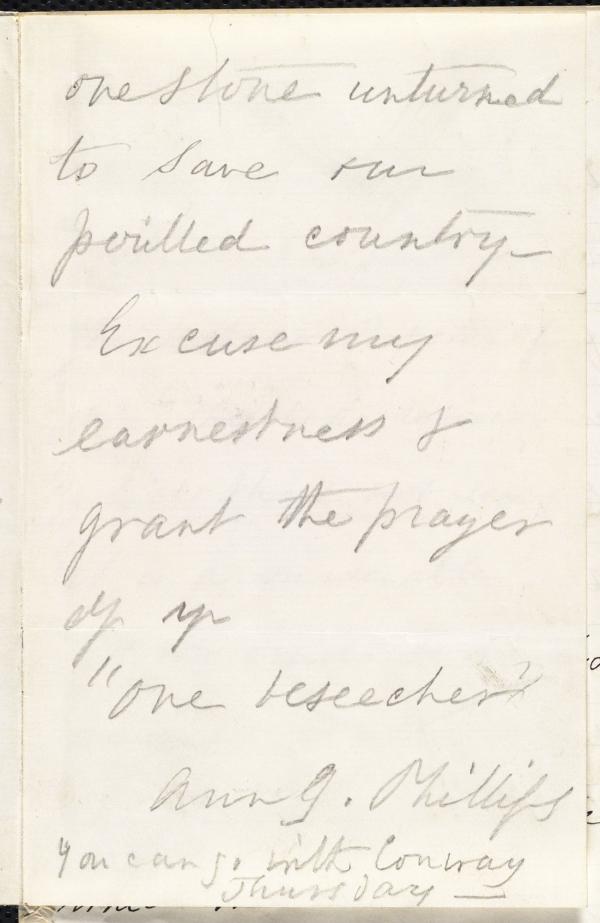 one stone unturned
to save our
perilled country—
Excuse my
earnestness &
grant the prayer
of yr
"one beseecher"
Ann G. Phillips
You can go with Conway
Thursday —